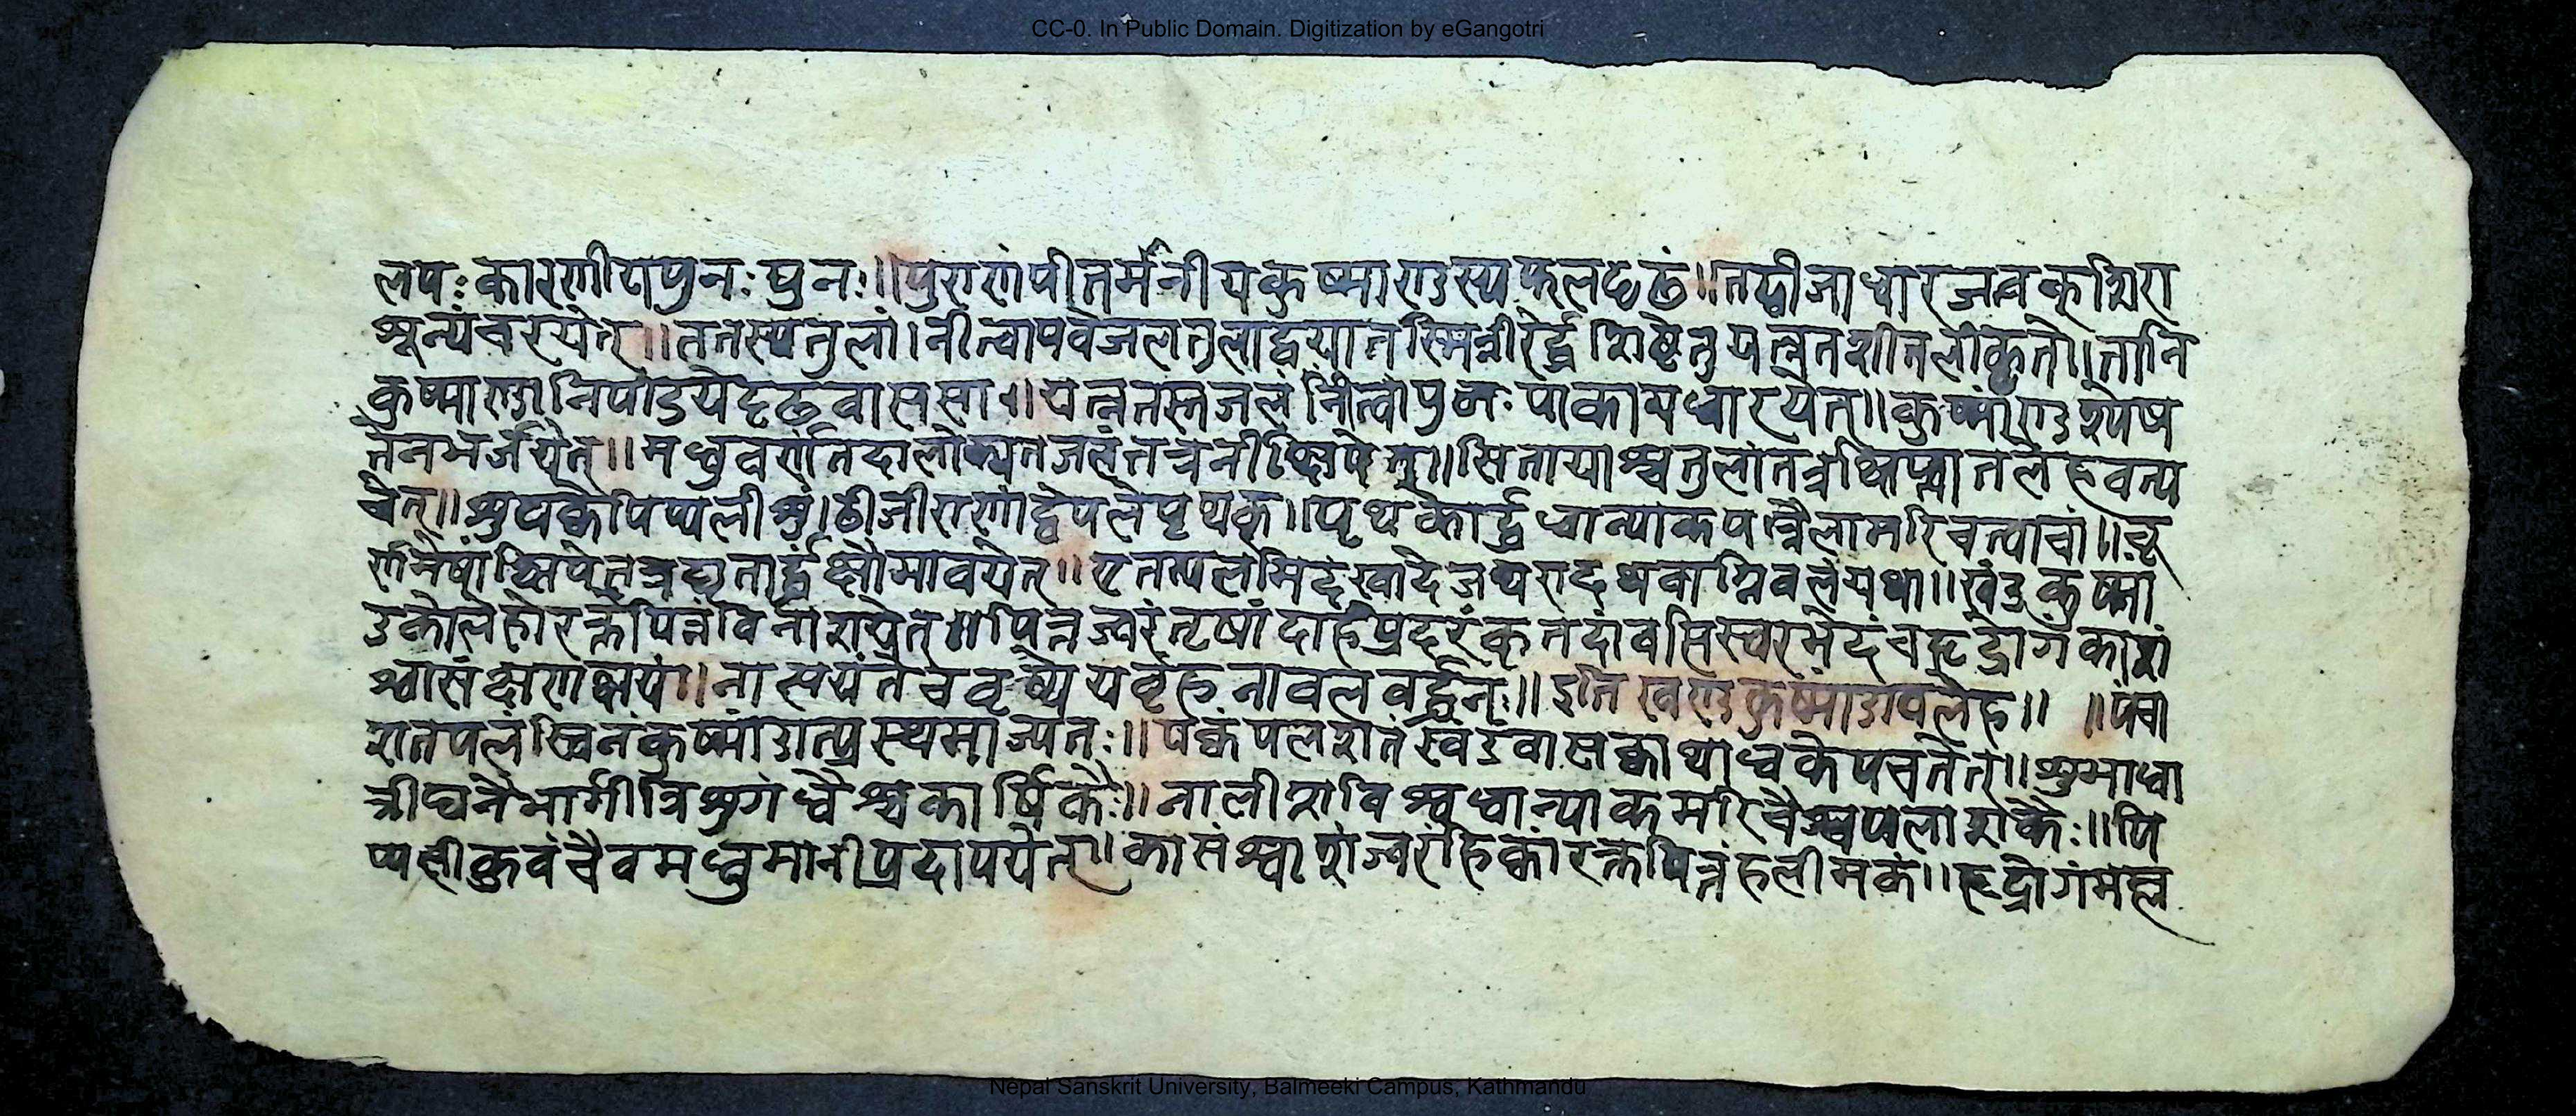 CC-0. In Public Domain. Digitization by eGangotri
लपः कारणीयपुनः पुनः॥पुराणंपीतमेनीयकुष्माण्डस्यफलदृढं॥तद्वीजाधारजत्वक्शिरा
शून्यंचरयेत्॥ततस्यतुलां।नीत्वापचेजलतुलाद्वयातस्मिन्नीरेर्द्धशिष्टेतुयत्नतशीतलीकृतो।तानि
कुष्माण्डानिपीडयेदृढवाससा॥यत्नतस्तजलंनीत्वापुनःपाकायधारयेत्॥कुष्मांण्डशोष
तेनभर्जयेत्॥मधुवर्णतिदालोक्यतजलंतत्रनीक्षिपेत्॥सितायाश्चतुलांतत्रक्षिप्त्वातलेहवत्प
चेत्॥शुपक्केपिप्पलीशुं।ठीजीराणांद्वेपलेपृथक्॥पृथकार्द्धधान्याकपत्रैलामरिचत्वाचां॥चू
र्णमेषांक्षिपेतत्रघृतार्द्धंक्षौमावयेत्॥एतत्पलमिदंखादेजथरादथवाग्निवलंयथा॥खंडकुष्मां
डकोलेहोरक्तपित्तंविनाशयेत॥पित्तज्वरंतृषांदाहंप्रदरंकृतदांवसिस्वरभेदंचहृद्रोगंकाशं
श्वासंक्षणक्षयं॥नास्ययंतेचवृष्येयवृंहनावलवर्द्धनः॥इतिखण्डकुष्मांडावलेह॥ ॥पंचा
शतपलंस्विनंकुष्मांडात्प्रस्थमाज्यतः॥पक्कंपलशतंखंडंवासक्काथाध्वकेपचतेत॥शुभाधा
त्रीघनैभार्गीत्रिशुगंध्वैश्चकार्षिकैः॥नालीशविश्वधान्याकमरिचैश्चपलाशकैः॥पि
प्पलीकुवंचैवमधुमानीप्रदापयेत्॥कासंश्वाशंज्वरांहिक्कांरक्तपित्तंहलीमकं॥हृद्रोगंमम्ल
Nepal Sanskrit University, Balmeeki Campus, Kathmandu